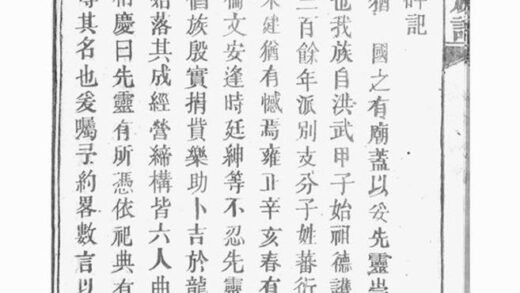 碑記
猶 國之有廟蓋以妥先靈崇
也我族自洪武甲子始祖德謙
三百餘年派別支分子姓蕃衍
未建猶有憾焉雍正辛亥春有
倫文安逢時廷紳等不忍先靈
猶族殷實捐貲樂助卜吉於龍
始落其成經營締構皆六人曲
相慶曰先靈有所憑依祀典有
尊其名也爰囑予約畧數言以